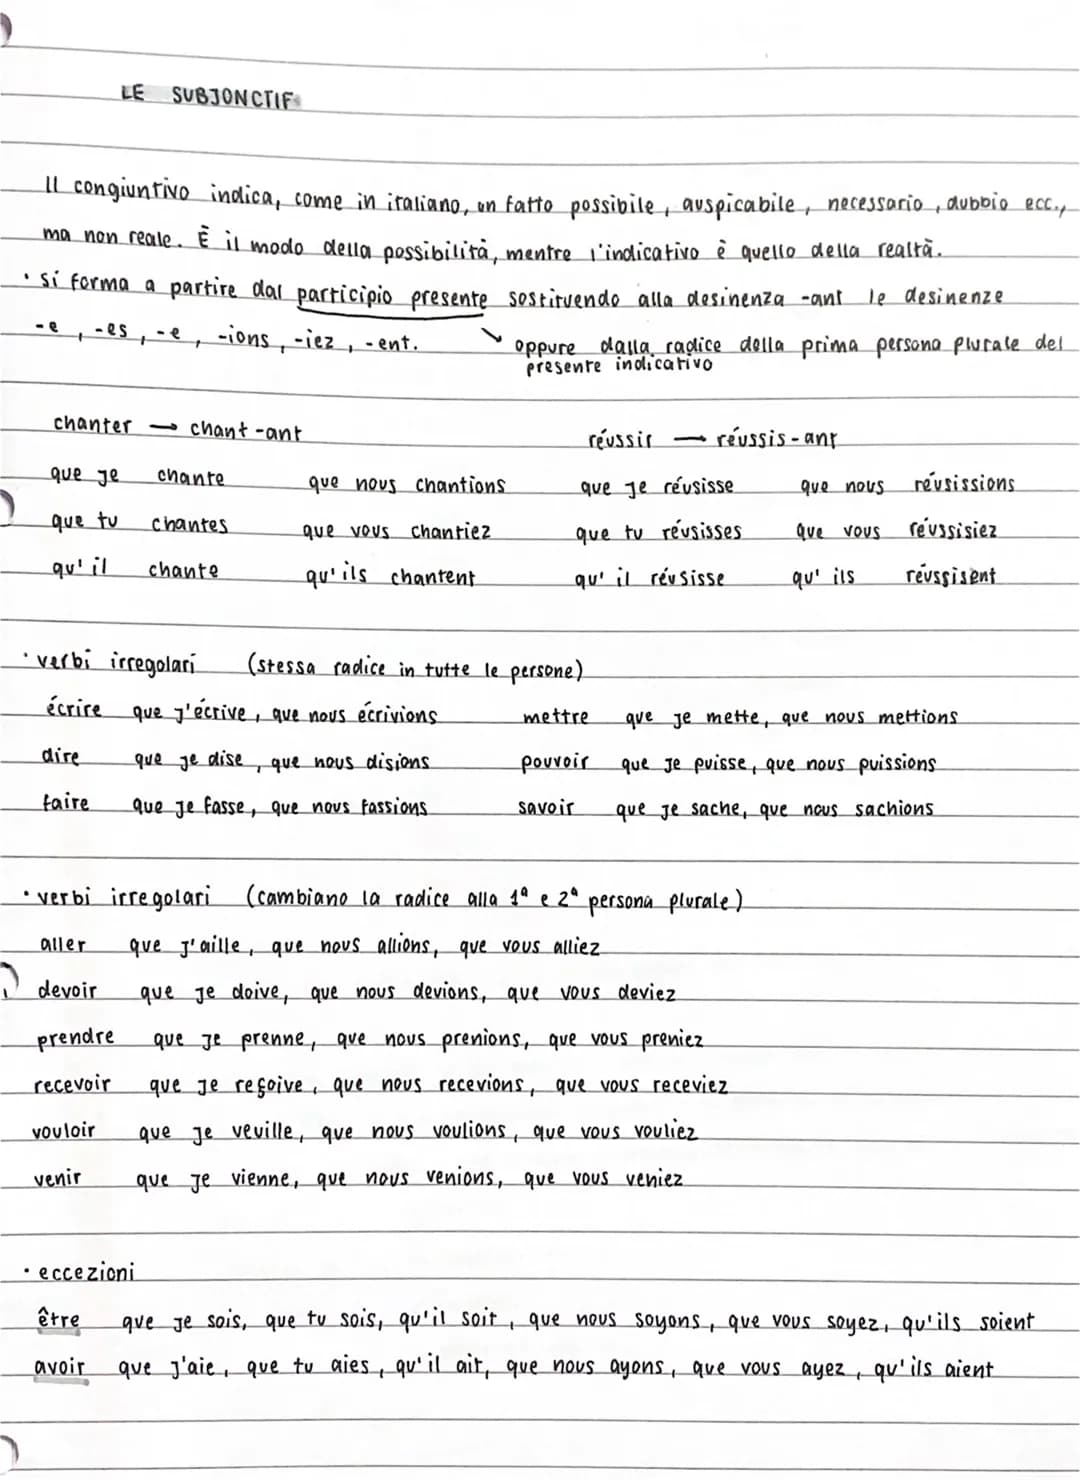 LE SUBJONCTIF
Il congiuntivo indica, come in italiano, un fatto possibile, auspicabile, necessario, dubbio ecc.,
ma non reale. È il modo della possibilità, mentre l'indicativo è quello della realtà.
· si forma a partire dal participio presente sostituendo alla desinenza -ant le desinenze
-e, -es, -e, -ions, -iez, -ent.
oppure dalla radice della prima persona plurale del
presente indicativo
chanter → chant-ant réussir → réussis-ant
que je chante que nous chantions que je réusisse que nous réusissions
que tu chantes que vous chantiez que tu réusisses que vous réussisiez
qu'il chante qu'ils chantent qu'il réusisse qu'ils réussisent
· verbi irregolari (stessa radice in tutte le persone)
écrire que j'écrive, que nous écrivions mettre que je mette, que nous mettions
dire que je dise, que nous disions pouvoir que je puisse, que nous puissions
faire que je fasse, que nous fassions savoir que je sache, que nous sachions
· verbi irregolari (cambiano la radice alla 1ª e 2ª persona plurale)
aller que j'aille, que nous allions, que vous alliez
devoir que je doive, que nous devions, que vous deviez
prendre que je prenne, que nous prenions, que vous preniez
recevoir que je reçoive, que nous recevions, que vous receviez
vouloir que je veuille, que nous voulions, que vous vouliez
venir que je vienne, que nous venions, que vous veniez
· eccezioni
être que je sois, que tu sois, qu'il soit, que nous soyons, que vous soyez, qu'ils soient
avoir que j'aie, que tu aies, qu'il ait, que nous ayons, que vous ayez, qu'ils aient